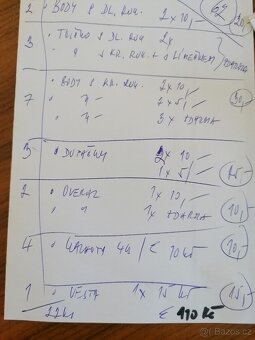 2 • BODY S DL. RUK. 2 x 10,- 20,-
3 • TRIČKO S DL. RUK. 2x
• " S KR. RUK. + S LÍMEČKEM ZDARMA
7 • BODY S KR. RUK. 2 x 10,-
• " 2 x 5,- 30,-
• " 3 x ZDARMA
3 • DUPAČKY 2 x 10,-
1 x 5,- 25,-
2 • OVERAL 1 x 10,-
• " 1x ZDARMA 10,-
4 • 4ks / € 10 Kč 10,-
1 • VESTA 1 x 15 Kč 15,-
22ks € 110 Kč
Bazos.cz